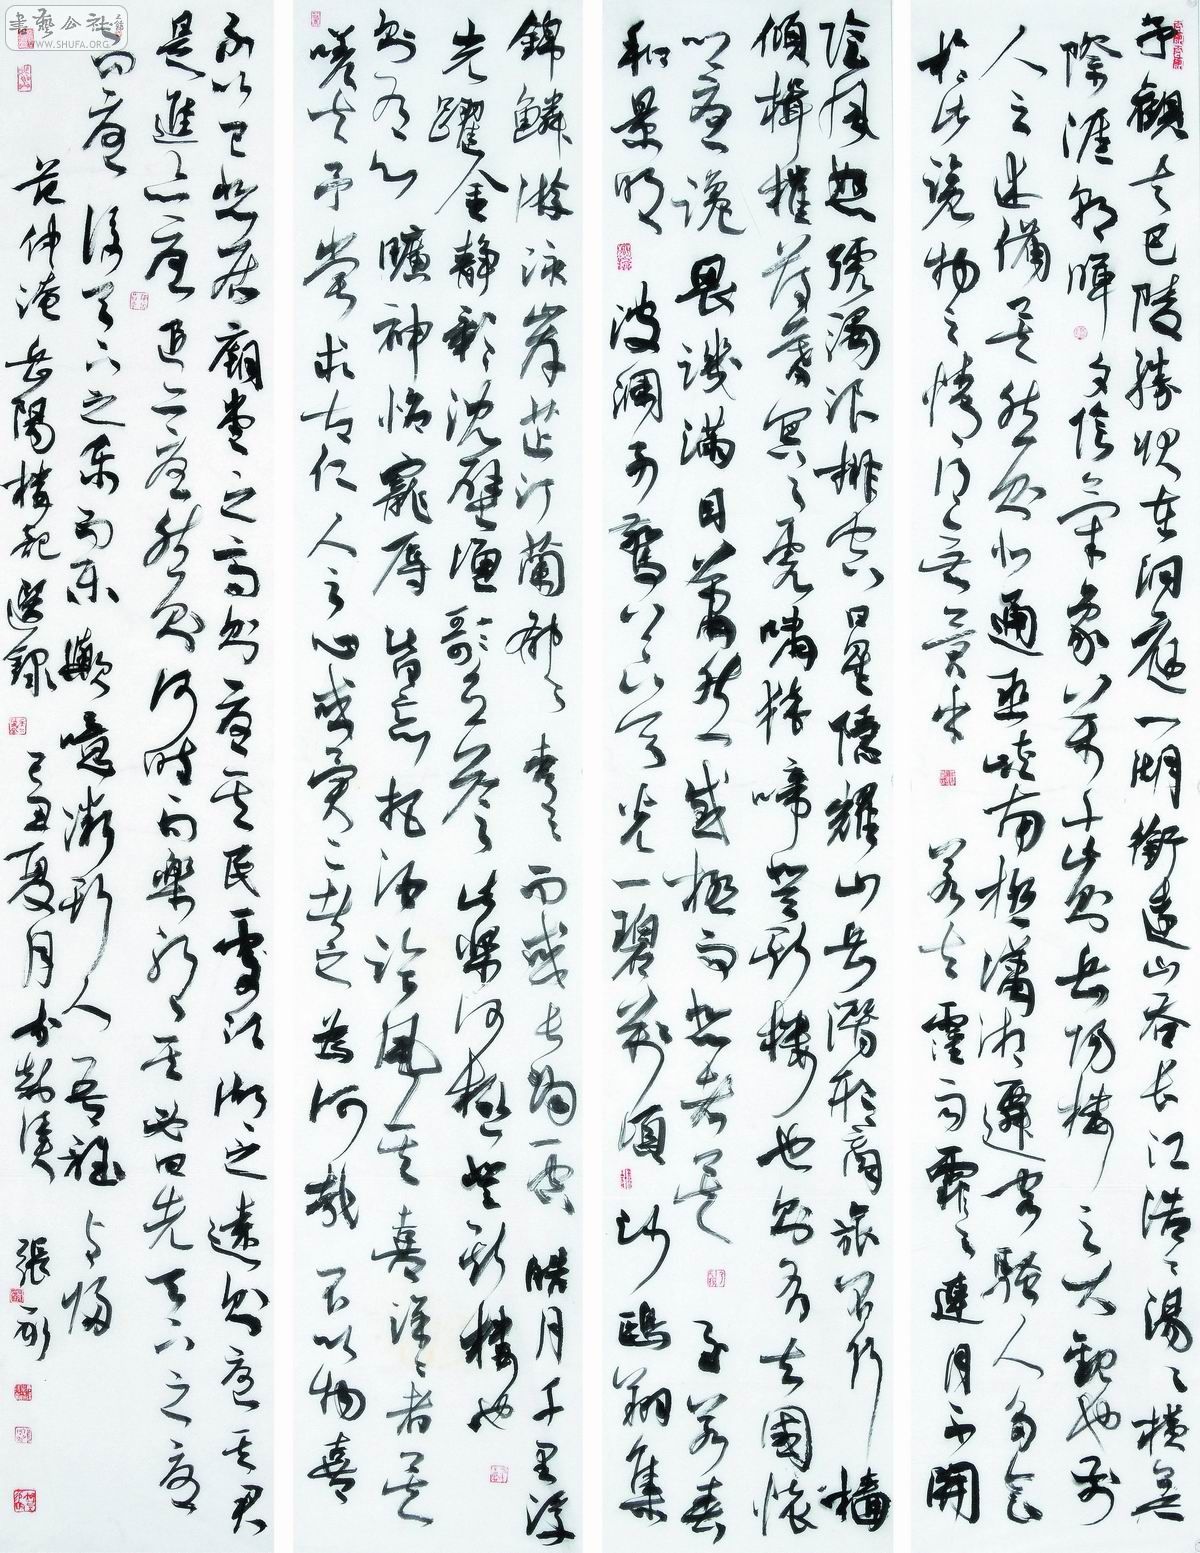 予觀夫巴陵勝狀在洞庭一湖銜遠山吞长江浩浩湯湯橫無
際涯朝暉夕陰氣象萬千此則岳陽樓之大觀也前
人之述備矣然則北通巫峽南極瀟湘遷客騷人多會
於此覽物之情得無異乎 若夫霪雨霏霏連月不開
陰風怒號濁浪排空日星隱耀山岳潛形商旅不行檣
傾楫摧薄暮冥冥虎嘯猿啼登斯樓也則有去國懷
鄉憂讒畏譏滿目蕭然感極而悲者矣 至若春
和景明 波瀾不驚上下天光一碧萬頃 沙鷗翔集
錦鱗游泳岸芷汀蘭郁郁青青而或长煙一空皓月千里浮
光躍金靜影沈璧漁歌互答此樂何極登斯樓也
則有心曠神怡寵辱皆忘把酒臨風其喜洋洋者矣
嗟夫予嘗求古仁人之心或異二者之為何哉不以物喜
不以己悲居廟堂之高則憂其民處江湖之遠則憂其君
是進亦憂退亦憂然則何時而樂耶其必曰先天下之憂
而憂後天下之樂而樂歟噫微斯人吾誰与歸
范仲淹岳陽樓記選錄 己丑夏月 張
書藝公社
WWW.SHUFA.ORG